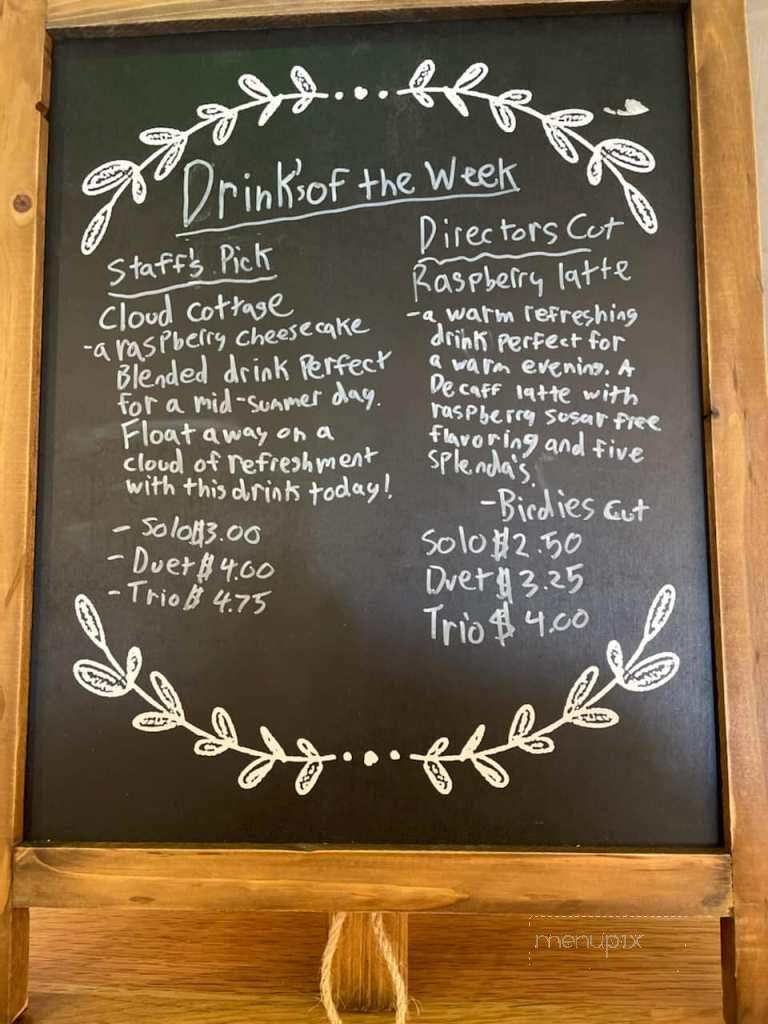 Drink's of the Week
Staff's Pick
Cloud Cottage
- a raspberry cheesecake
Blended drink Perfect
for a mid-summer day.
Float away on a
cloud of refreshment
with this drink today!
- Solo $3.00
- Duet $ 4.00
- Trio $ 4.75
Directors Cut
Raspberry latte
- a warm refreshing
drink perfect for
a warm evening. A
Decaff latte with
raspberry sugar free
flavoring and five
Splenda's.
- Birdies cut
Solo $2.50
Duet $3.25
Trio $ 4.00
menupix